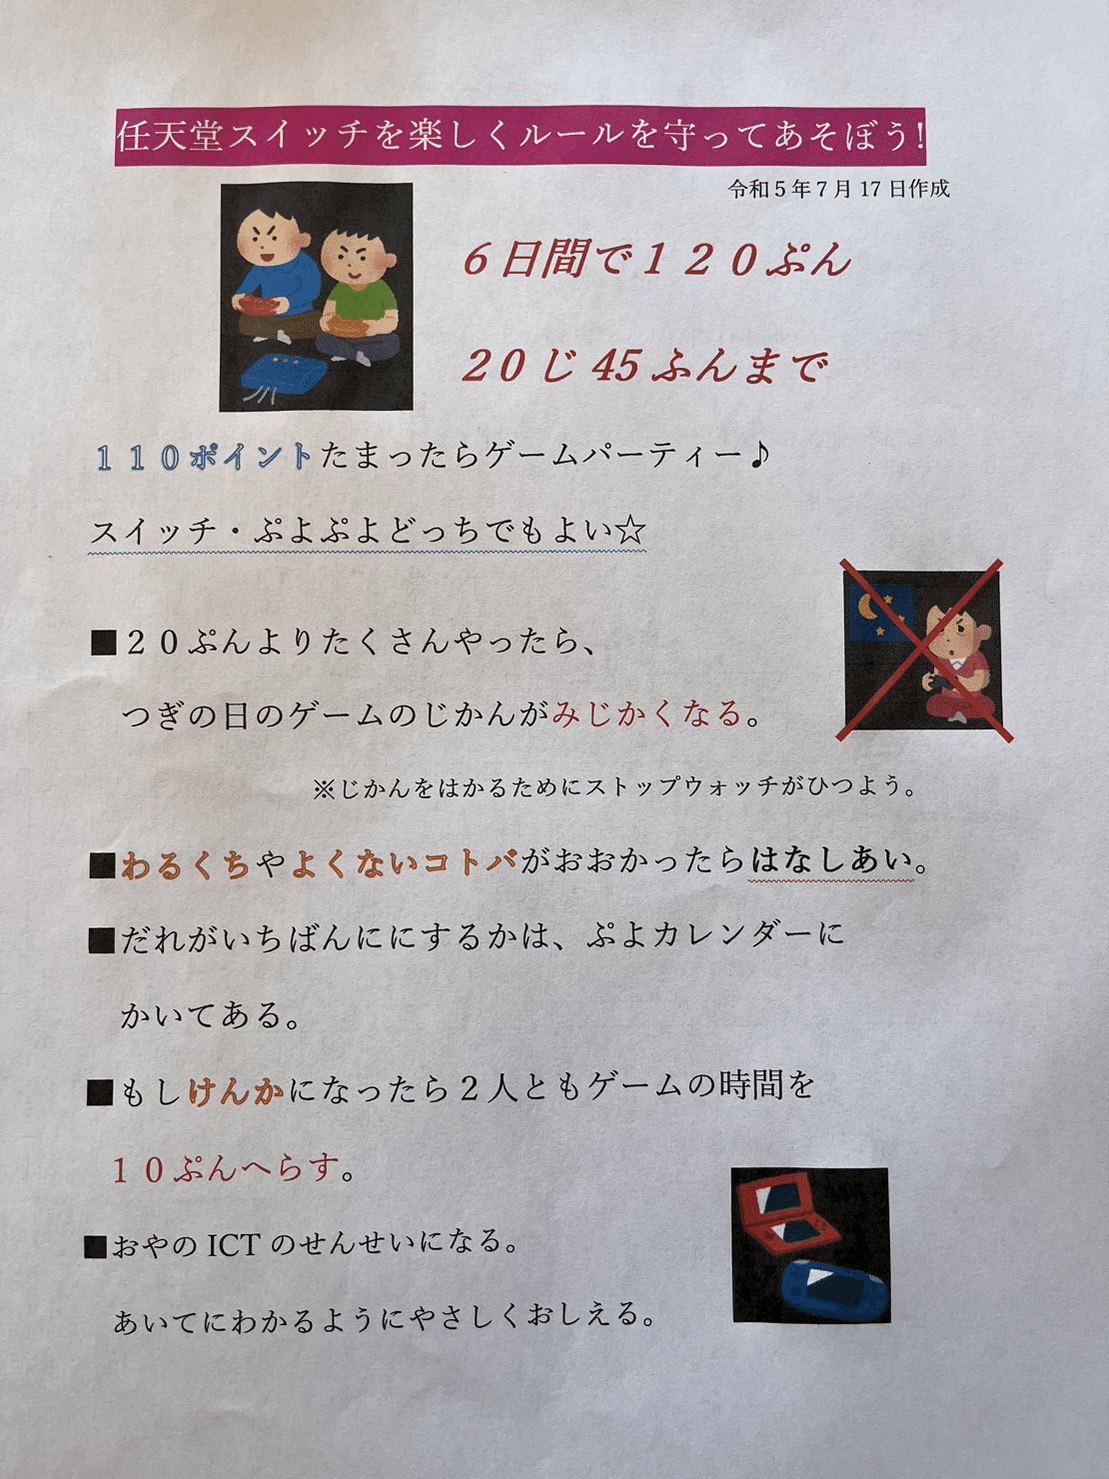 任天堂スイッチを楽しくルールを守ってあそぼう!
令和5年7月17日作成
6日間で120ぷん
20じ45ふんまで
110ポイントたまったらゲームパーティー♪
スイッチ・ぷよぷよどっちでもよい☆
■20ぷんよりたくさんやったら、
つぎの日のゲームのじかんがみじかくなる。
※じかんをはかるためにストップウォッチがひつよう。
■わるくちやよくないコトバがおおかったらはなしあい。
■だれがいちばんににするかは、ぷよカレンダーに
かいてある。
■もしけんかになったら2人ともゲームの時間を
10ぷんへらす。
■おやのICTのせんせいになる。
あいてにわかるようにやさしくおしえる。